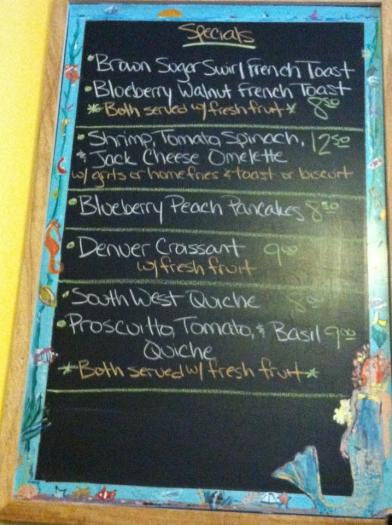 Specials
• Brown Sugar Swirl French Toast
• Blueberry Walnut French Toast
*Both served w/ fresh fruit* 8⁵⁰
• Shrimp, Tomato, Spinach, 12⁵⁰
& Jack Cheese Omelette
w/ grits or homefries & toast or biscuit
• Blueberry Peach Pancakes 8⁵⁰
• Denver Croissant 9⁰⁰
w/ fresh fruit
• SouthWest Quiche
• Proscuitto, Tomato, & Basil 9⁰⁰
Quiche
*Both served w/ fresh fruit*